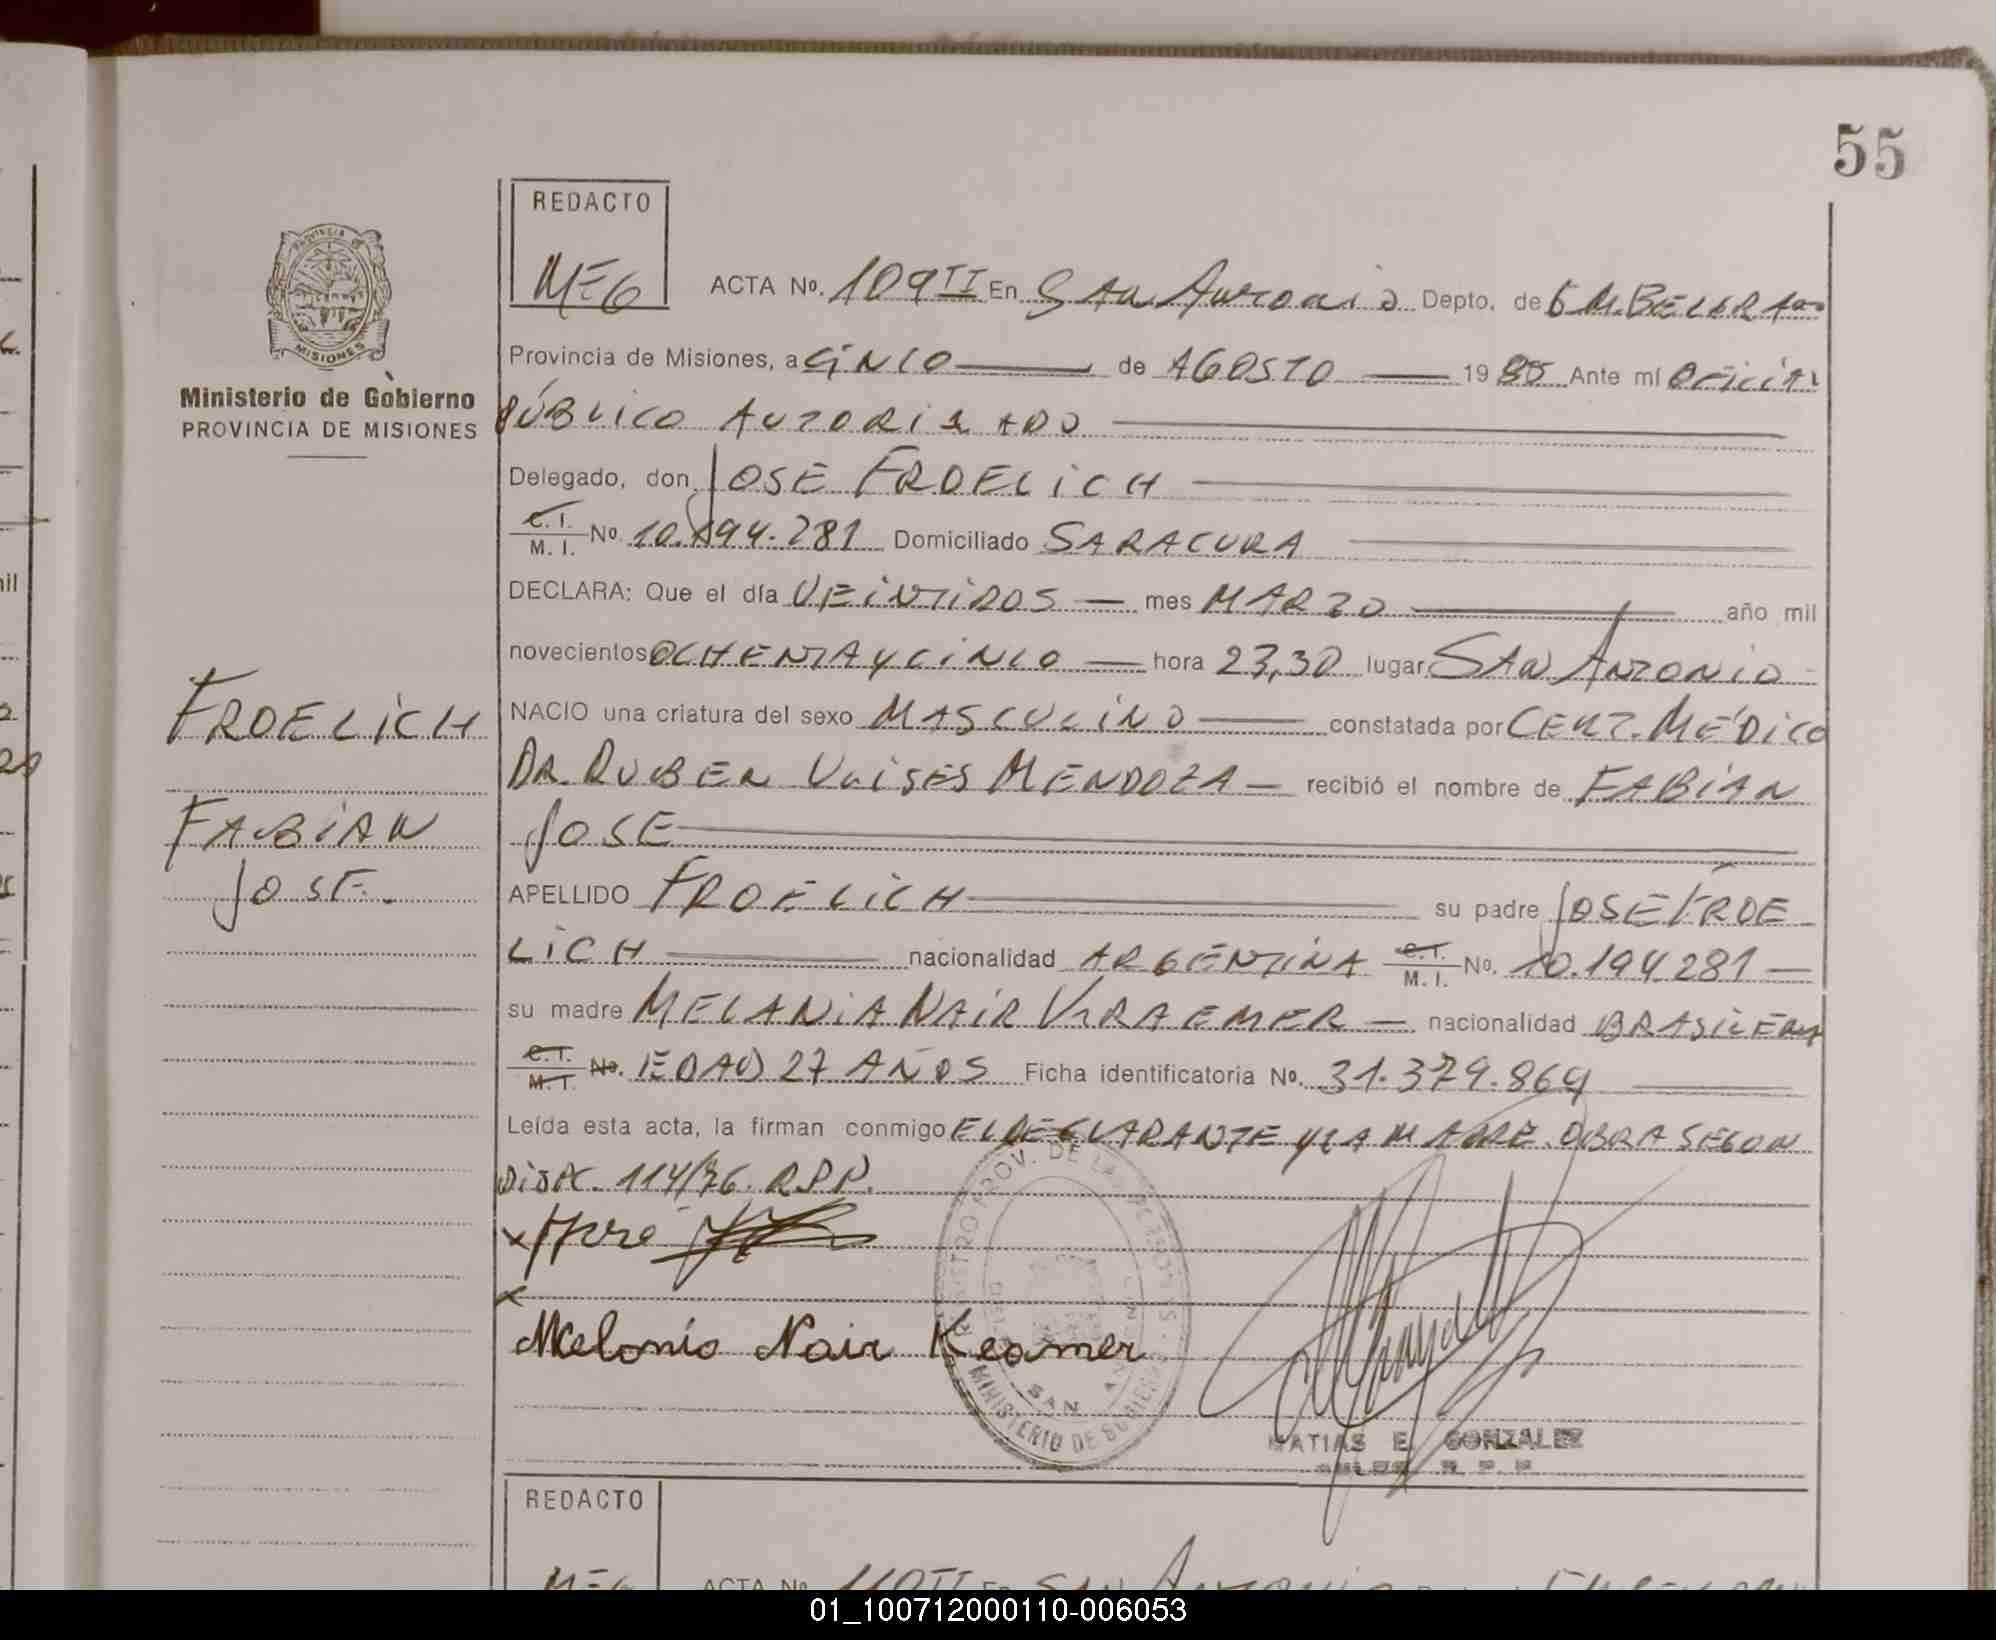 55
REDACTO
MEG
ACTA Nº. 109 II En SAN ANTONIO Depto. de G M. BELGRANO
PROVINCIA DE MISIONES
Ministerio de Gobierno
PROVINCIA DE MISIONES
Provincia de Misiones, a CINCO de AGOSTO 1985 Ante mí OFICIAL
PÚBLICO AUTORIZADO
Delegado, don JOSE FROELICH
C. I. M. I. Nº 10.194.281 Domiciliado SARACURA
DECLARA: Que el día VEINTIDOS mes MARZO año mil
novecientos OCHENTA Y CINCO hora 23,30 lugar SAN ANTONIO
FROELICH
FABIAN
JOSE.
NACIO una criatura del sexo MASCULINO constatada por CENT. MÉDICO
DR. RUBEN ULISES MENDOZA recibió el nombre de FABIÁN
JOSE
APELLIDO FROELICH su padre JOSE FROE
LICH nacionalidad ARGENTINA C.I. M. I. Nº. 10.194.281
su madre MELANIA NAIR KRAEMER nacionalidad BRASILERA
C.I. M.I. Nº. EDAD 27 AÑOS Ficha identificatoria Nº. 31.379.869
Leída esta acta, la firman conmigo EL DECLARANTE Y LA MADRE. OBRA SEGUN
DISP. 114/76. R.P.P.
x
x
Melania Nair Keamer
REGISTRO PROV. DE LAS PERSONAS
SAN ANTONIO
MINISTERIO DE GOBIERNO
MATIAS E. GONZALEZ
REDACTO
MEG
ACTA Nº 110 II En SAN ANTONIO
01_100712000110-006053